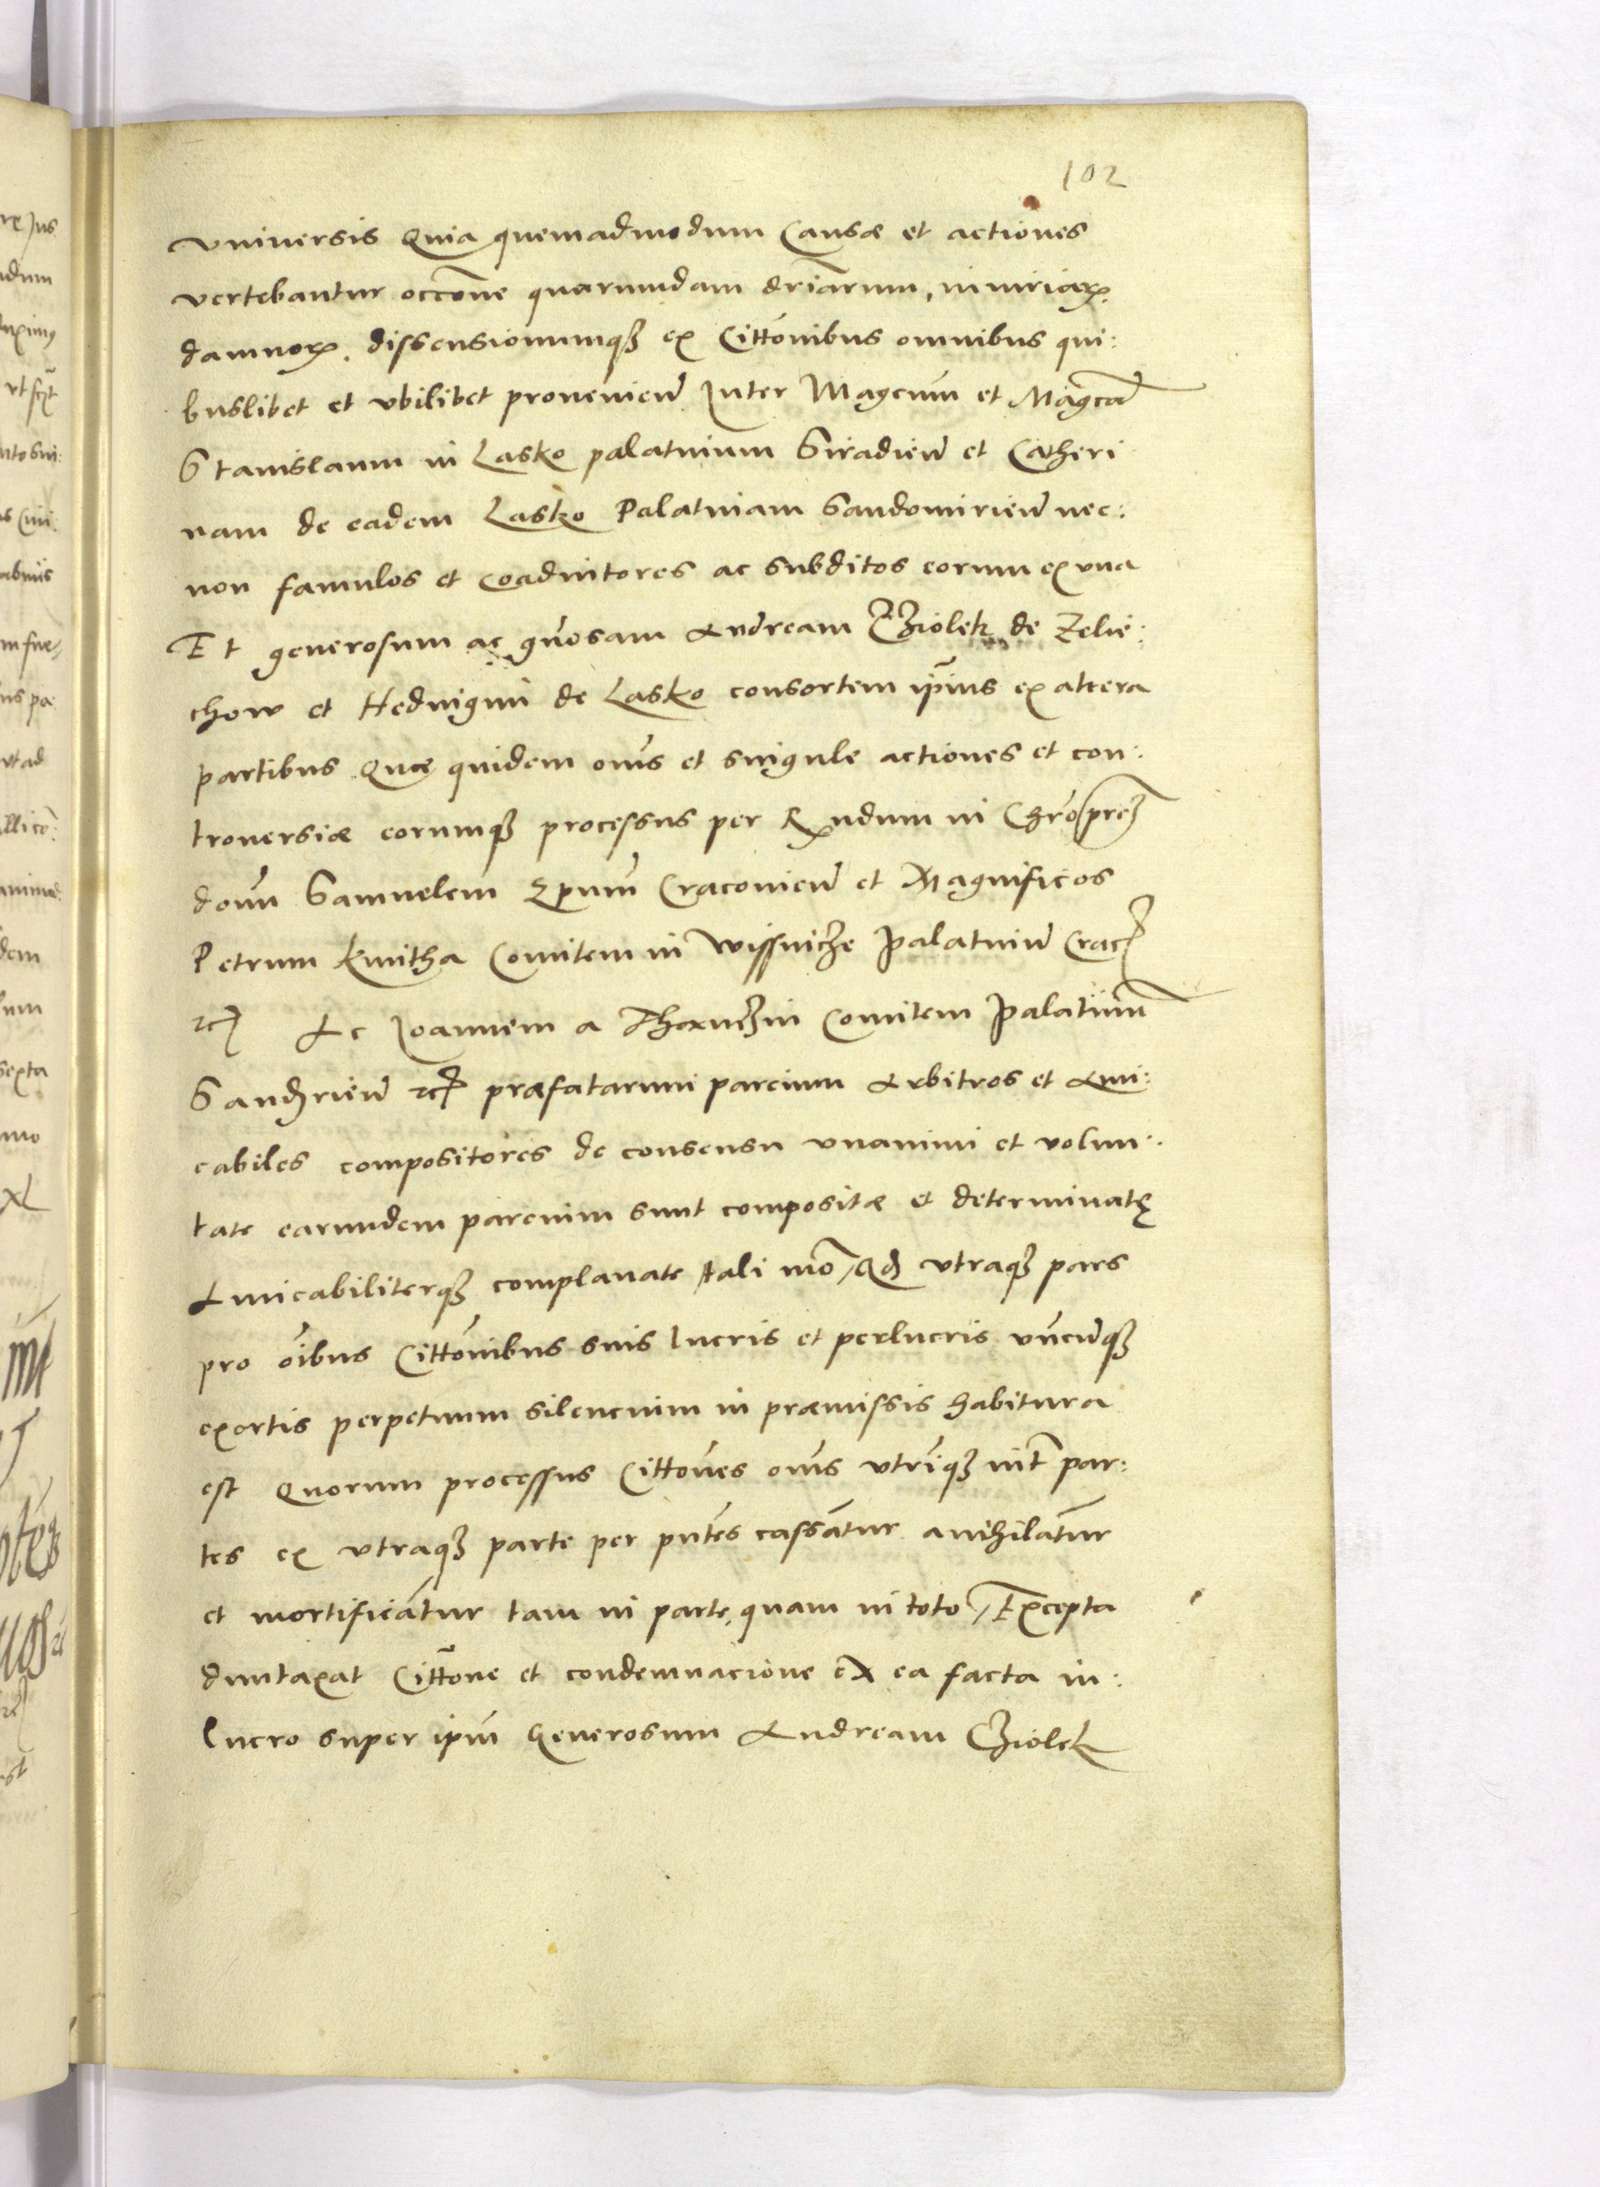 102
vniuersis Quia quemadmodum Causæ et actiones
vertebantur occone quarumdam driarum, iniuriarꝝ
damnorꝝ. dissensionumqꝫ ex Cittonibus omnibus qui:
buslibet et vbilibet prouenien Inter Magcum et Magcã
Stanislaum in Lasko palatinum Siradien et Catheri
nam de eadem Lasko Palatinam Sandomirien nec:
non famulos et Coadiutores ac subditos eorum ex vna
Et generosum ac gnosam Andream Cziolek de Zelie:
chow et Heduigim de Lasko consortem ipius ex altera
partibus Quę quidem oms et singule actiones et con:
trouersiæ eorumqꝫ processus per Rndum in Chro prem
dom Samuelem Epum Cracouien et Magnificos
Petrum kmitha Comitem in Wissnicze Palatinu Crac
etc Ac Joannem a Tharnczin Comitem Palatinum
Sandrien etc præfatarum parcium Arbitros et Ami:
cabiles compositores de consensu vnanimi et volun:
tate earundem parcium sunt compositæ et determinatę
Amicabiliterqꝫ complanate tali mo, Qd vtraqꝫ pars
pro oibus Cittonibus suis lucris et perlucris vncunqꝫ
exortis perpetuum silencium in præmissis habitura
est Quorum processus Cittones oms vtrinqꝫ int par:
tes ex vtraqꝫ parte per pntes cassantur anihilantur
et mortificantur tam in parte, quam in toto, Excepta
duntaxat Cittone et condemnacione ex ea facta in:
lucro super ipm Generosum Andream Cziolek